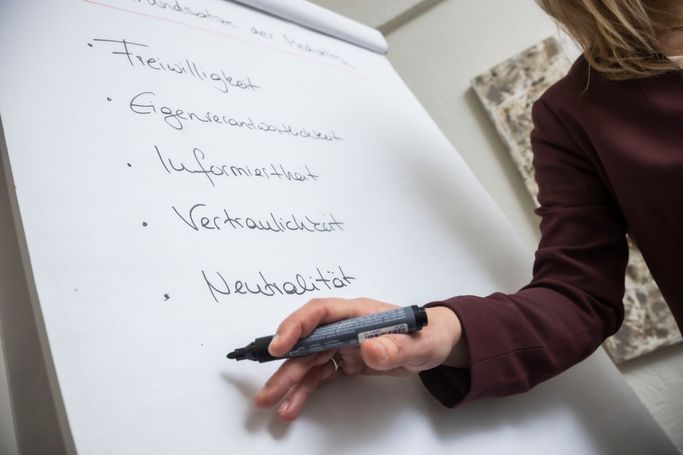 Grundsätze der Mediation
Freiwilligkeit
Eigenverantwortlichkeit
Informiertheit
Vertraulichkeit
Neutralität